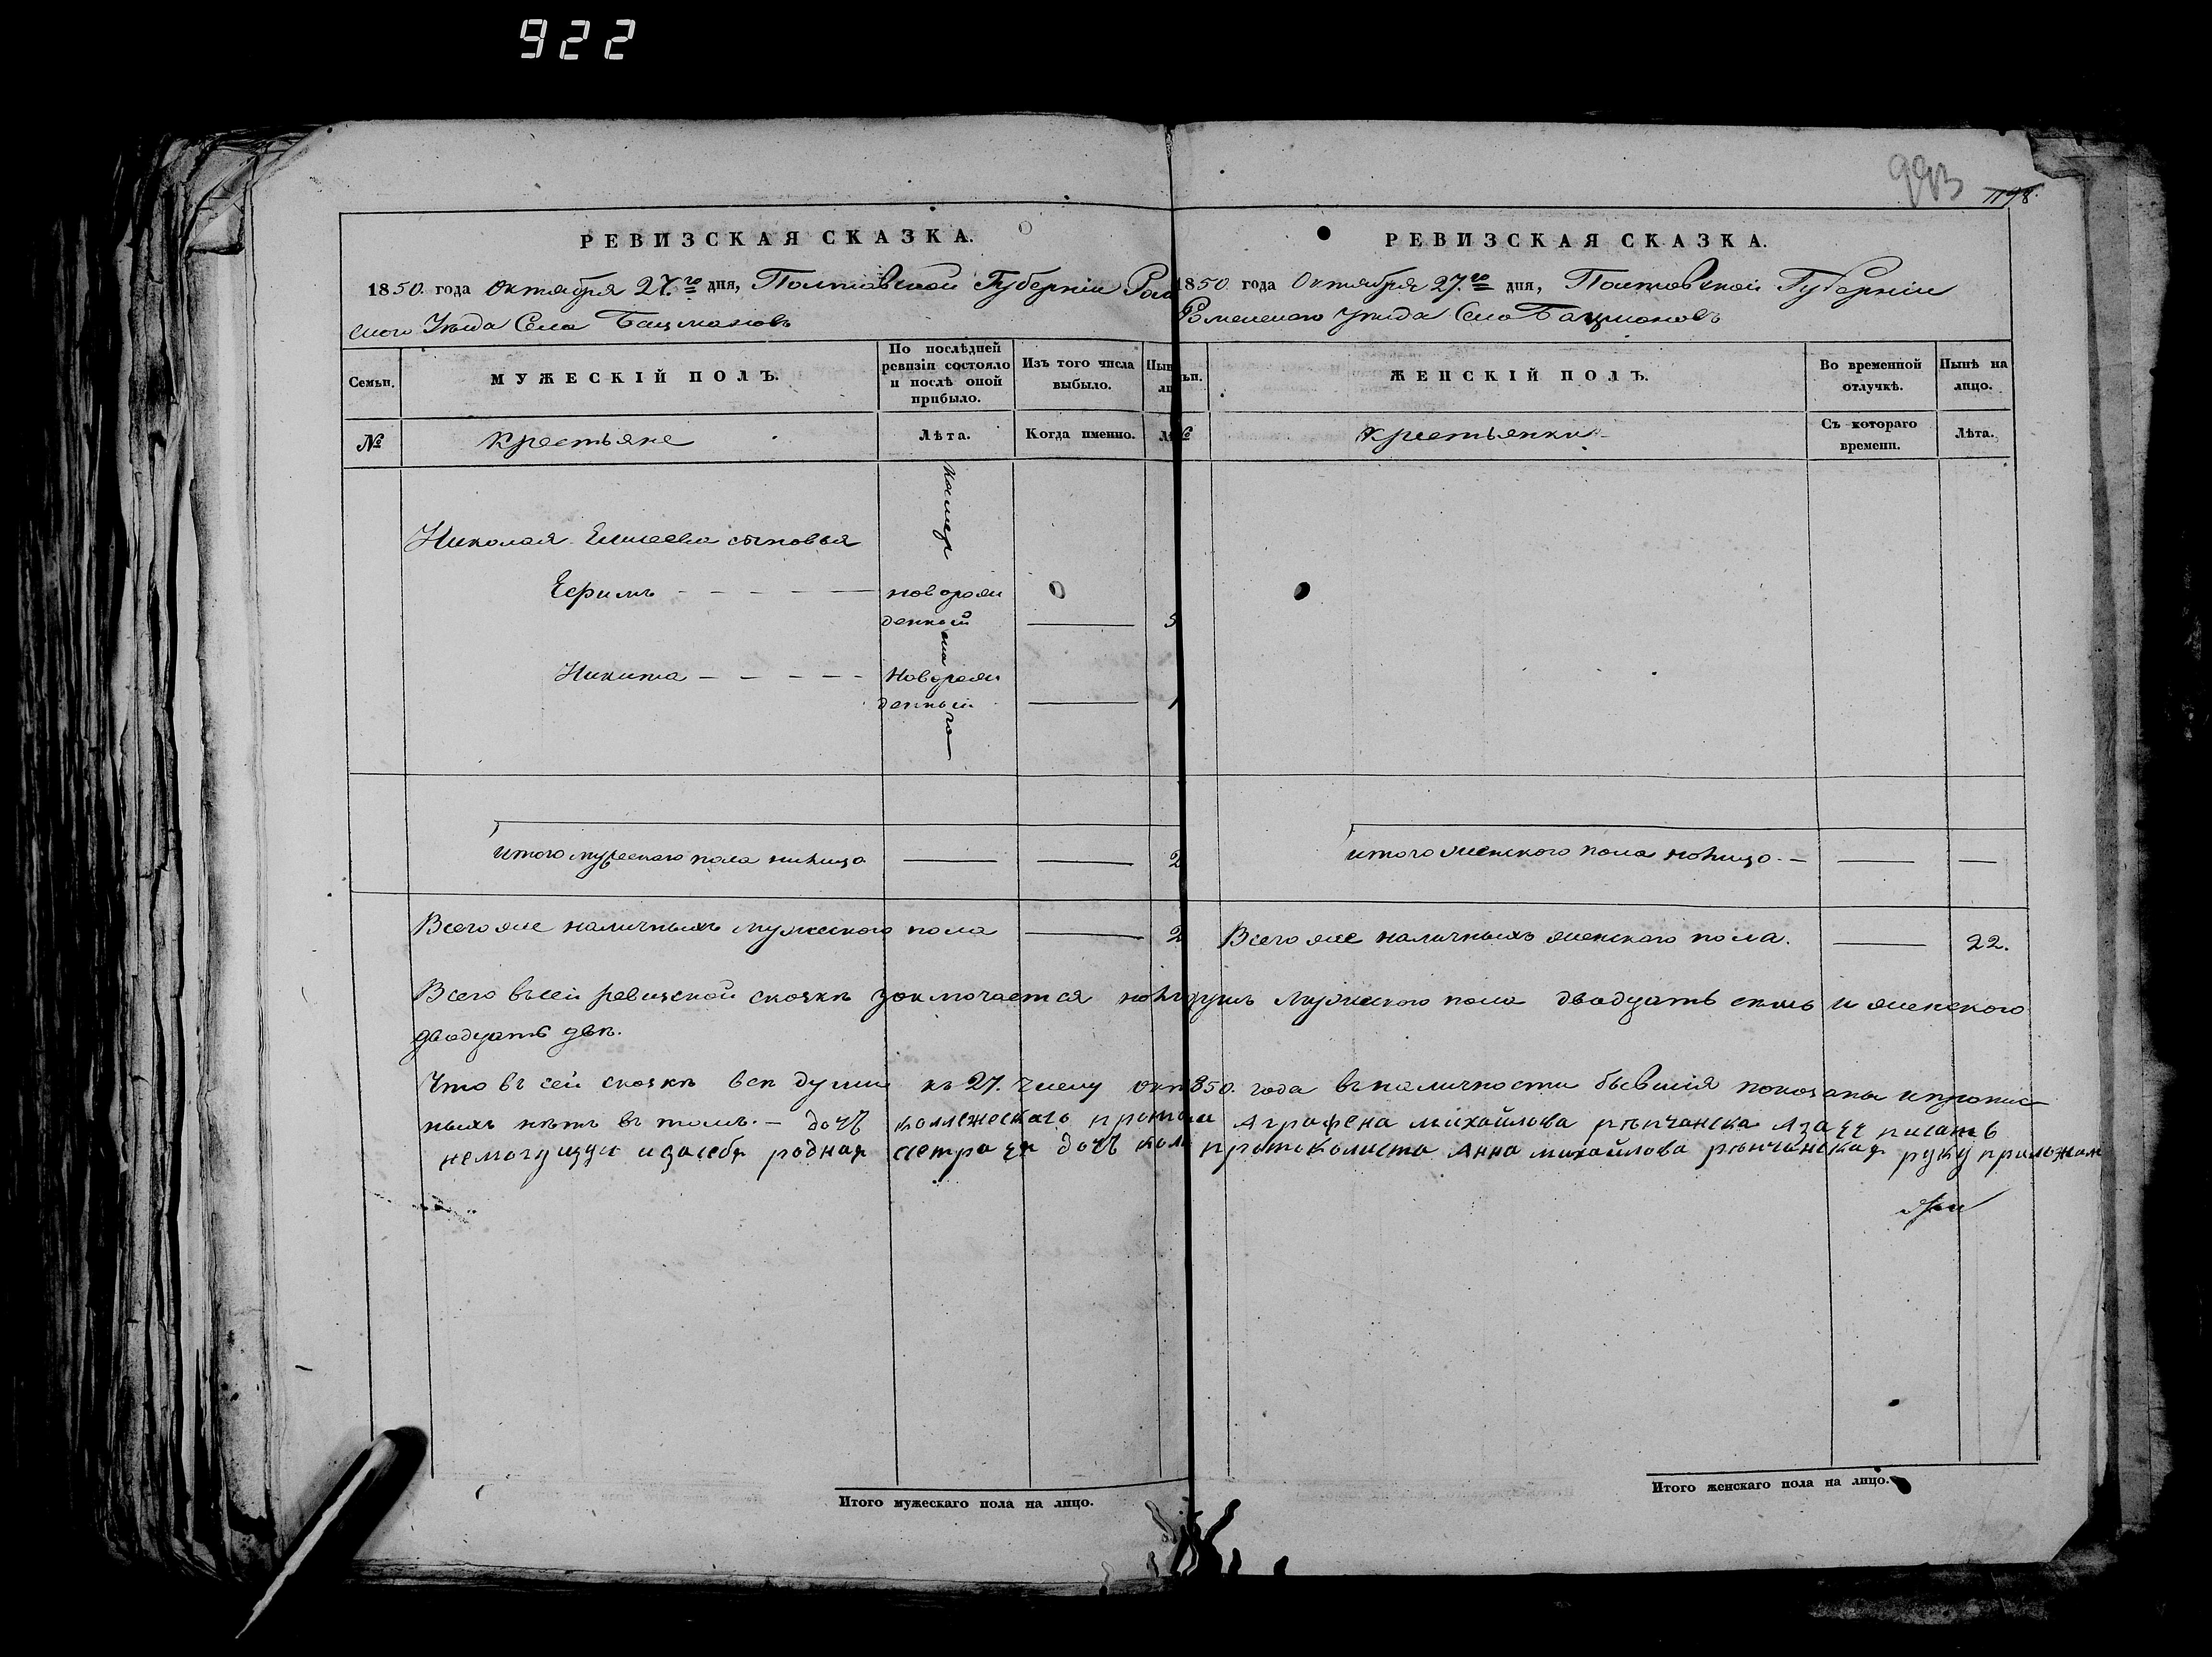 922
993
1178.
РЕВИЗСКАЯ СКАЗКА.
1850. года Октября 27.го дня, Полтавской Губерніи Ром
ского Уѣзда Села Бацмановъ
Семьи. МУЖЕСКІЙ ПОЛЪ. По послѣдней ревизіи состояло и послѣ оной прибыло. Изъ того числа выбыло.
№ Крестьяне Лѣта. Когда именно.
Николая Елисеева сыновья
Ефимъ новорож
денный 5
Никита новорож
денный 1
итого мужеского пола налицо 2
Всего же наличныхъ мужеского пола 2
РЕВИЗСКАЯ СКАЗКА.
1850. года Октября 27.го дня, Полтовской Губерніи
Роменского Уѣзда Село Бацмоновъ
ЖЕНСКІЙ ПОЛЪ. Во временной отлучкѣ. Нынѣ на лицо.
крестьянки Съ котораго времени. Лѣта.
итого женского пола нолицо
Всего же наличныхъ женского пола. 22.
Всего въсей ревизской скозкѣ заключается душъ мужеского пола двадцать семь и женского
двадцать двѣ.
Что въ сей скозкѣ всѣ души къ 27. числу окт 850. года въналичности бывшія показаны ипропис
ныхъ нѣтъ въ томъ. – дочь коллежескаго Аграфена михайлова рѣпчанска Азаее писать
немогущую изасебя родная сестра ея дочь кол протоколиста Анна михайлова рѣпчанская руку приложила
Итого мужескаго пола на лицо.
Итого женскаго пола на лицо.